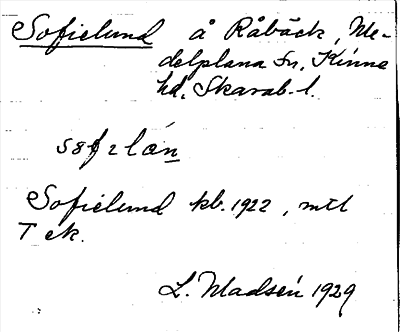 Sofielund å Råbäck, Me-
delplana Sn, Kinne
hd, Skarab. l.
Sofielund kb. 1922, mtl
T ek.
L. Madsén 1929